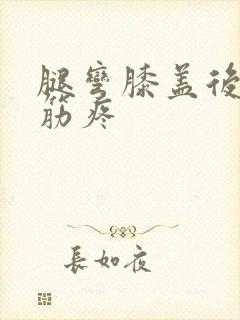 腿彎膝蓋後
筋疼
長如夜